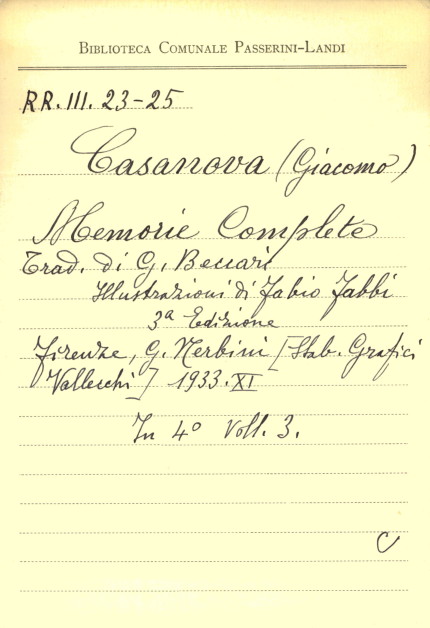 BIBLIOTECA COMUNALE PASSERINI-LANDI
RR. III. 23-25
Casanova (Giacomo)
Memorie Complete
Trad. di G. Beccari
Illustrazioni di Fabio Fabbi
3ª Edizione
Firenze, G. Nerbini [Stab. Grafici
Vallecchi] 1933. XI
In 4° Voll. 3.
C